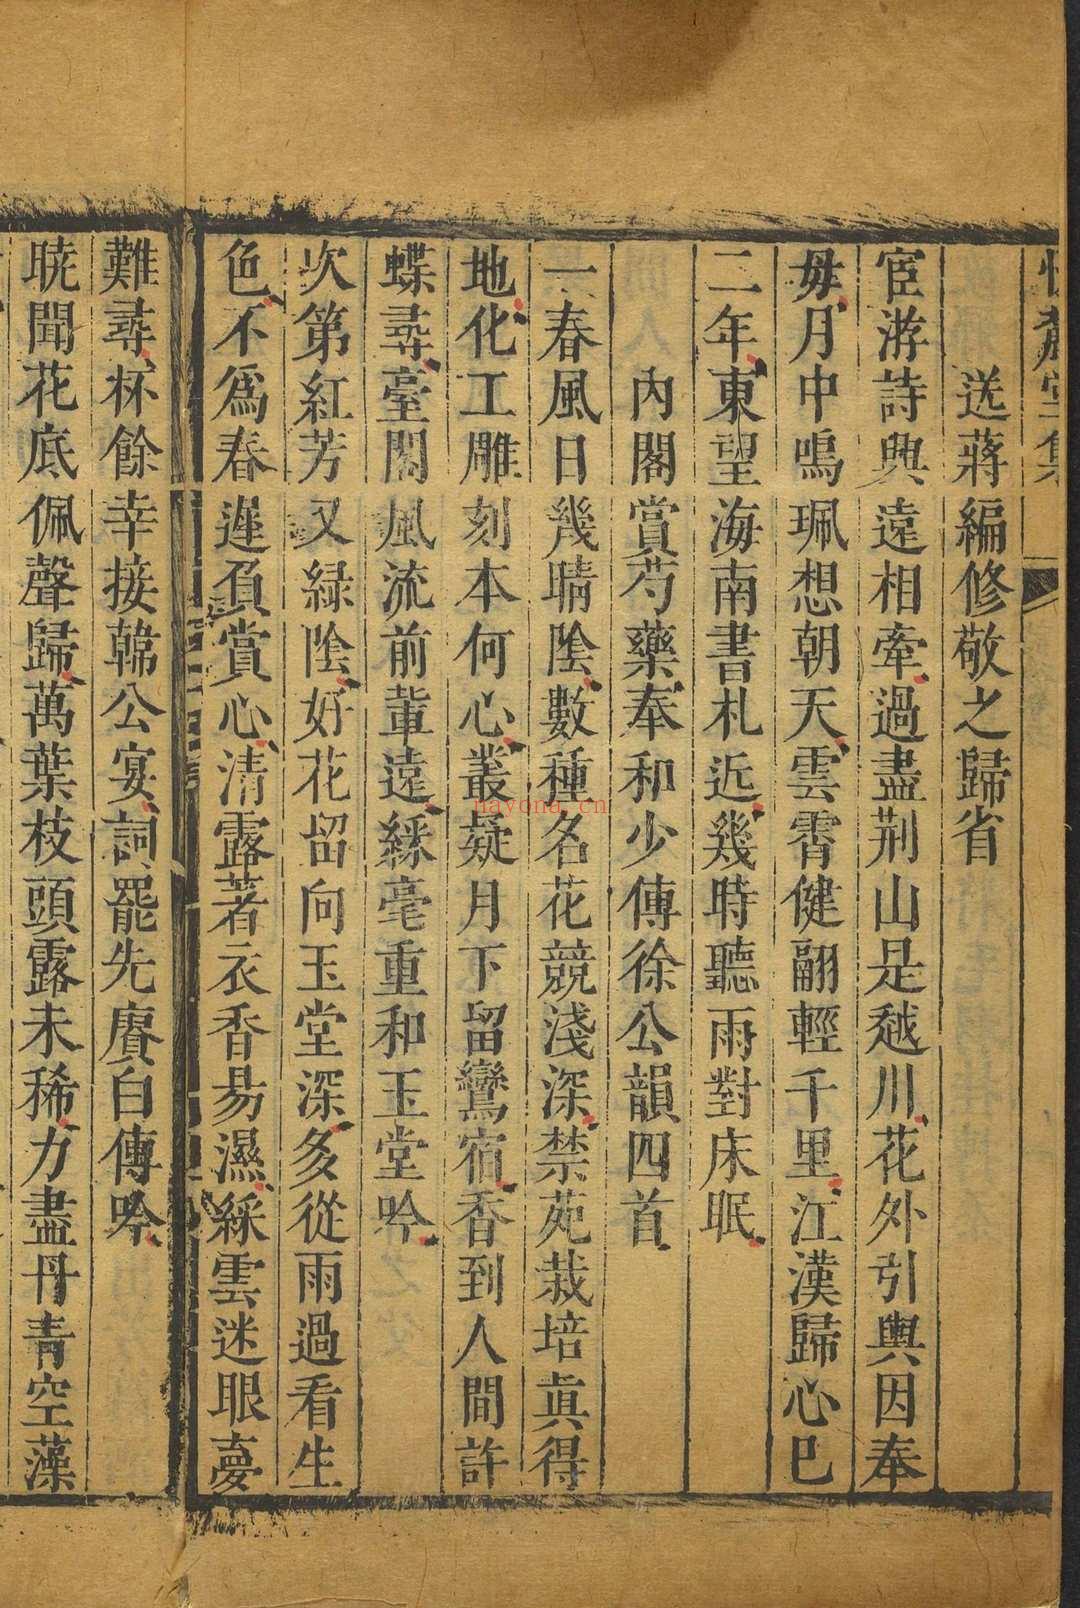 懷麓堂集
送蔣編修敬之歸省
宦游詩興遠相牽過盡荆山是越川花外引輿因奉
母月中鳴珮想朝天雲霄健翮輕千里江漢歸心巳
二年東望海南書札近幾時聽雨對床眠
內閣賞芍藥奉和少傅徐公韻四首
一春風日幾晴陰數種名花競淺深禁苑栽培眞得
地化工雕刻本何心叢疑月下留鸞宿香到人間許
蝶尋臺閣風流前輩遠綵毫重和玉堂吟
次第紅芳又綠陰好花留向玉堂深多從雨過看生
色不為春遲負賞心清露著衣香易濕綵雲迷眼夢
難尋杯餘幸接韓公宴詞罷先賡白傅吟
曉聞花底佩聲歸萬葉枝頭露未稀力盡丹青空藻
nayona.cn